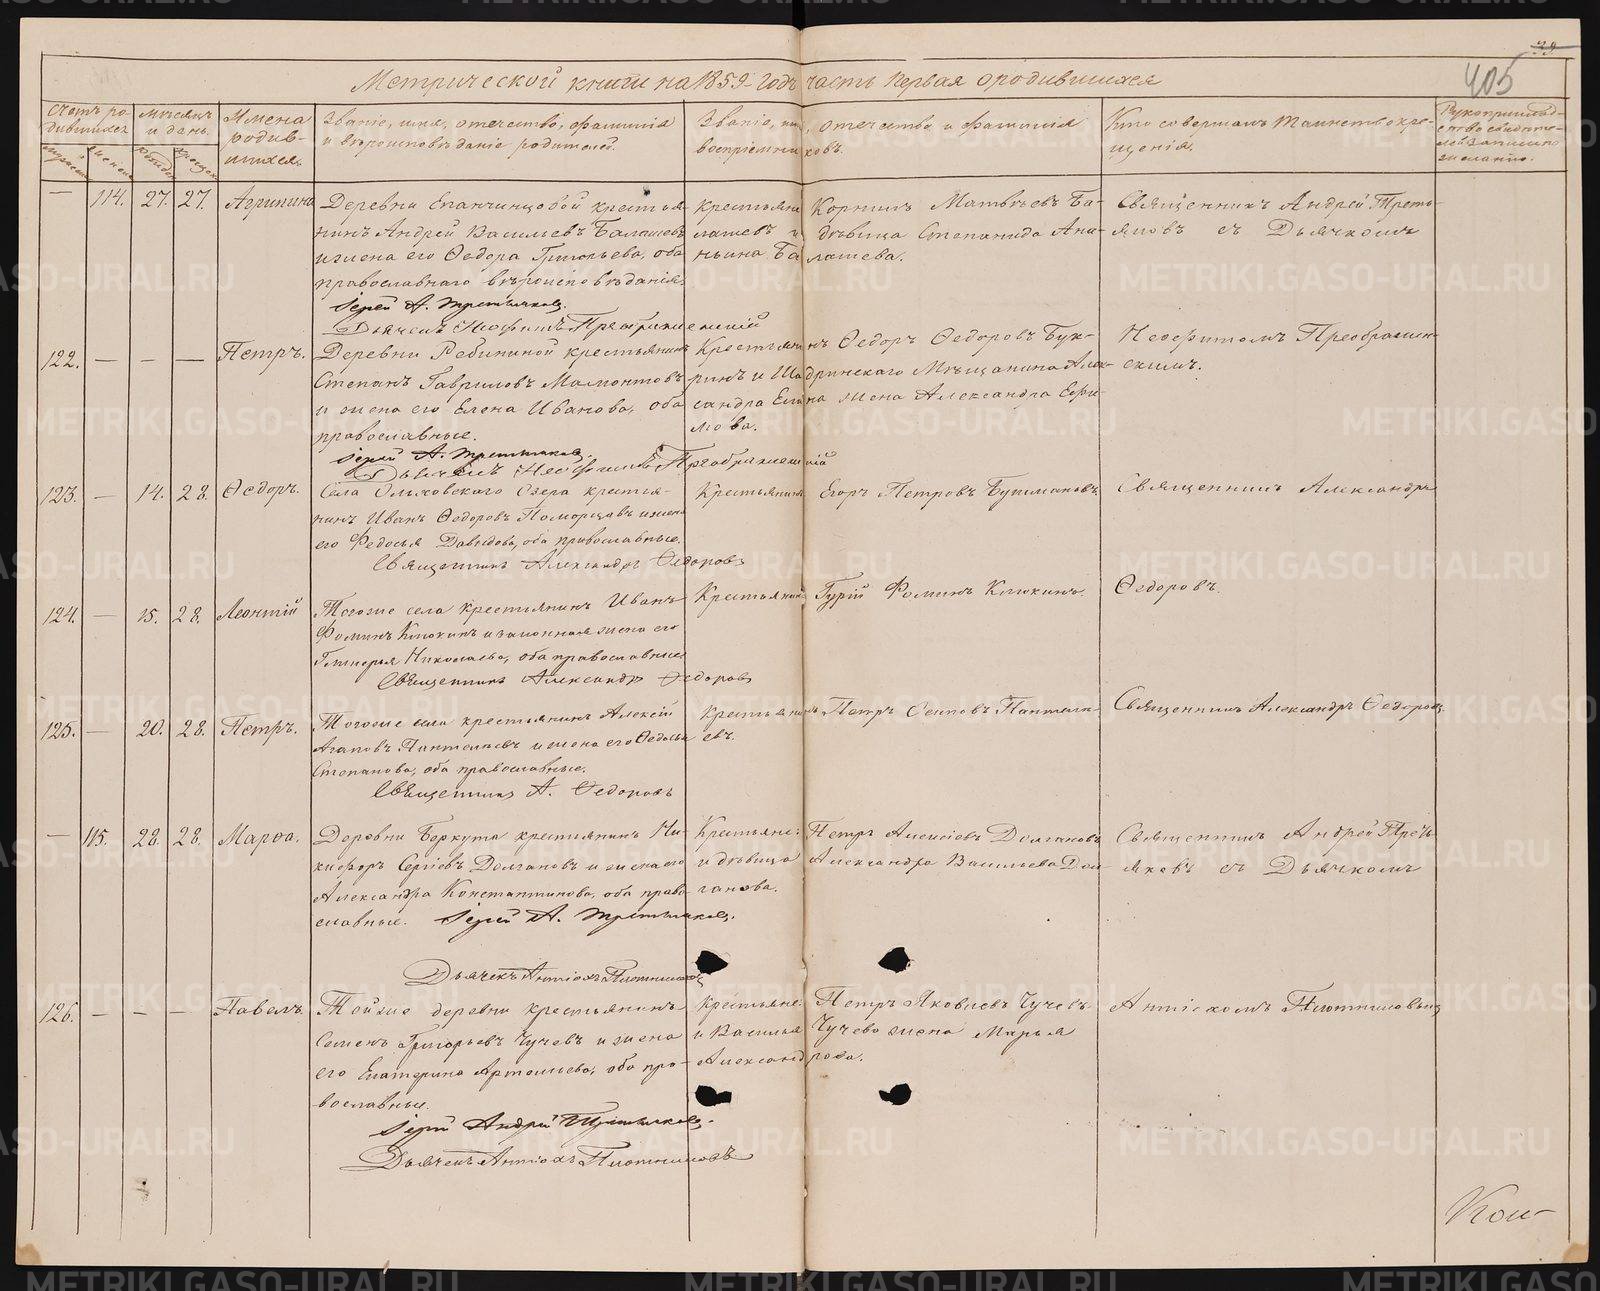 39
405
Метрической книги на 1859 годъ часть первая о родившихся
Счетъ ро-
дившихся
Мѣсяцъ
и день.
Имена
родив-
шихся.
Званіе, имя, отчество, фамилія
и вѣроисповѣданіе родителей.
Званіе, имя, отчество и фамилія
воспріемниковъ.
Кто совершалъ таинство кре-
щенія.
Рукоприклад-
ство свидѣте-
лей записи по
желанію.
— 114. 27. 27. Агрипина
Деревни Епанчинцовой крестья-
нинъ Андрей Васильевъ Балашевъ
и жена его Ѳедора Григорьева, оба
православнаго вѣроисповѣданія.
Іерей А. Третьяковъ.
Дьячекъ Неофитъ Преображенскій
Крестьяне Корнилъ Матвѣевъ Ба-
лашевъ и дѣвица Степанида Ана-
ньина Балашева.
Священникъ Андрей Треть-
яковъ съ Дьячкомъ
122. — — — Петръ.
Деревни Рябининой крестьянинъ
Степанъ Гавриловъ Мамонтовъ
и жена его Елена Иванова, оба
православные.
Іерей А. Третьяковъ.
Дьячекъ Неофитъ Преображенскій
Крестьянинъ Ѳедоръ Ѳедоровъ Бук-
ринъ и Шадринскаго Мѣщанина Алек-
сандра жена Александра Ефи-
мова.
Неофитомъ Преображен-
скимъ.
123. — 14. 28. Ѳедоръ.
Села Ольховскаго Озера крестья-
нинъ Иванъ Ѳедоровъ Поморцовъ и жена
его Федосья Давыдова, оба православные.
Священникъ Александръ Ѳедоровъ
Крестьянинъ Егоръ Петровъ
Священникъ Александръ
124. — 15. 28. Леонтій
Тогоже села крестьянинъ Иванъ
Фоминъ Клюкинъ и законная жена его
Гликерья Николаева, оба православные
Священникъ Александръ Ѳедоровъ
Крестьянинъ Гурій Фоминъ Клюкинъ.
Ѳедоровъ.
125. — 20. 28. Петръ.
Тогоже села крестьянинъ Алексѣй
Агаповъ Пантелеевъ и жена его Ѳедосья
Степанова, оба православные.
Священникъ А. Ѳедоровъ
Крестьянинъ Петръ Осиповъ Пантеле-
евъ.
Священникъ Александръ Ѳедоровъ
— 115. 28. 28. Марѳа.
Деревни Беркута крестьянинъ Ни-
кифоръ Сергѣевъ Долгановъ и жена его
Александра Константинова, оба право-
славные. Іерей А. Третьяковъ.
Дьячекъ Антіохъ Плотниковъ
Крестьяне: Петръ Алексѣевъ Долгановъ
и дѣвица Александра Васильева Дол-
ганова.
Священникъ Андрей Треть-
яковъ съ Дьячкомъ
126. — — — Павелъ.
Тойже деревни крестьянинъ
Семенъ Григорьевъ Чучевъ и жена
его Екатерина Артемьева, оба пра-
вославные.
Іерей Андрей Третьяковъ.
Дьячекъ Антіохъ Плотниковъ
Крестьяне: Петръ Яковлевъ Чучевъ
и Василья Чучева жена Марья
Александрова.
Антіохомъ Плотниковымъ
Кол-
METRIKI.GASO-URAL.RU